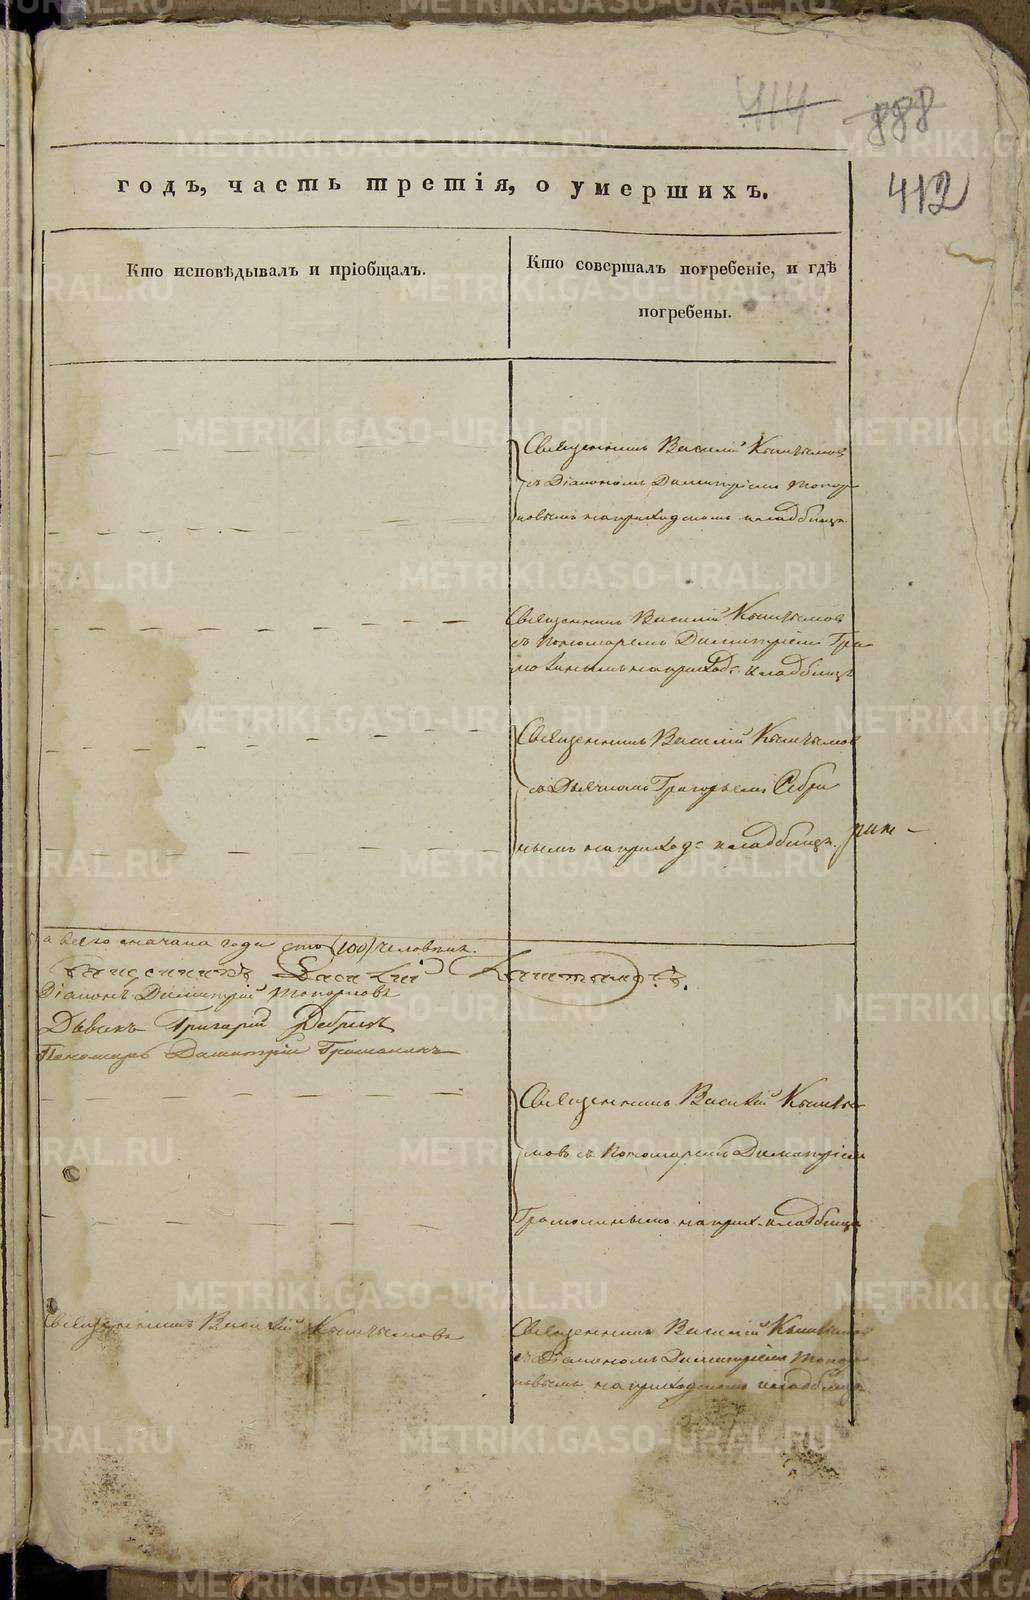 414 888
412
годъ, часть третія, о умершихъ.
Кто исповѣдывалъ и пріобщалъ.
Кто совершалъ погребеніе, и гдѣ
погребены.
Священникъ Василій Кыштымов
съ Діакономъ Димитріемъ Топор
ковымъ на приходскомъ кладбищѣ
Священникъ Василій Кыштымов
съ Пономаремъ Димитріемъ Гра
на приход: кладбищѣ
Священникъ Василій Кыштымов
съ Дьячкомъ Григорьемъ
на приход: кладбищѣ.
а всего сначала года сто (100) человѣкъ.
Священникъ Василій Кыштымовъ.
Діаконъ Димитрій Топорковъ
Дьячекъ Григорій
Пономарь Димитрій
Священникъ Василій Кышты
мовъ съ Пономаремъ Димитріем
на прих. кладбищѣ
Священникъ Василій Кыштымовъ
Священникъ Василій Кыштымов
съ Діакономъ Димитріемъ Топор
ковымъ на приходскомъ кладбищѣ
METRIKI.GASO-URAL.RU